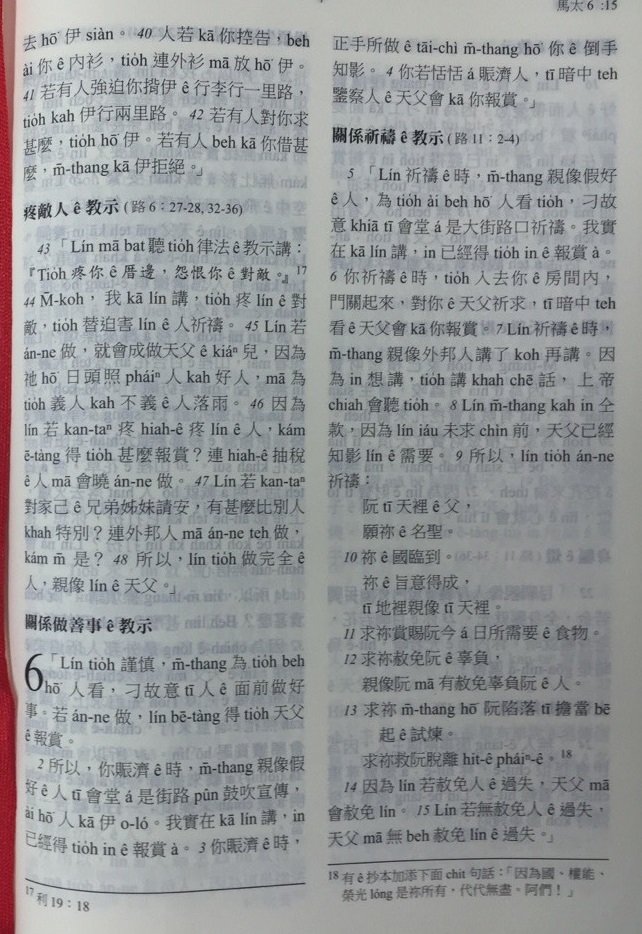 馬太 6 :15
去 hō͘ 伊 siàn。40 人若 kā 你控告，beh
ài 你 ê 內衫，tio̍h 連外衫 mā 放 hō͘ 伊。
41 若有人強迫你揹伊 ê 行李行一里路，
tio̍h kah 伊行兩里路。42 若有人對你求
甚麼，tio̍h hō͘ 伊。若有人 beh kā 你借甚
麼，m̄-thang kā 伊拒絕。」
疼敵人 ê 教示 (路 6：27-28, 32-36)
43 「Lín mā bat 聽 tio̍h 律法 ê 教示講：
『Tio̍h 疼你 ê 厝邊，怨恨你 ê 對敵。』17
44 M̄-koh，我 kā lín 講，tio̍h 疼 lín ê 對
敵，tio̍h 替迫害 lín ê 人祈禱。45 Lín 若
án-ne 做，就會成做天父 ê kiáⁿ 兒，因為
祂 hō͘ 日頭照 pháiⁿ 人 kah 好人，mā 為
tio̍h 義人 kah 不義 ê 人落雨。46 因為
lín 若 kan-taⁿ 疼 hiah-ê 疼 lín ê 人，kám
ē-tàng 得 tio̍h 甚麼報賞？連 hiah-ê 抽稅
ê 人 mā 會曉 án-ne 做。47 Lín 若 kan-taⁿ
對家己 ê 兄弟姊妹請安，有甚麼比別人
khah 特別？連外邦人 mā án-ne teh 做，
kám m̄ 是？48 所以，lín tio̍h 做完全 ê
人，親像 lín ê 天父。」
關係做善事 ê 教示
6 「Lín tio̍h 謹慎，m̄-thang 為 tio̍h beh
hō͘ 人看，刁故意 tī 人 ê 面前做好
事。若 án-ne 做，lín bē-tàng 得 tio̍h 天父
ê 報賞。
2 所以，你賑濟 ê 時，m̄-thang 親像假
好 ê 人 tī 會堂 á 是街路 pûn 鼓吹宣傳，
ài hō͘ 人 kā 伊 o-ló。我實在 kā lín 講，in
已經得 tio̍h in ê 報賞 à。3 你賑濟 ê 時，
17 利 19：18
正手所做 ê tāi-chì m̄-thang hō͘ 你 ê 倒手
知影。4 你若恬恬 á 賑濟人，tī 暗中 teh
鑒察人 ê 天父會 kā 你報賞。」
關係祈禱 ê 教示 (路 11：2-4)
5 「Lín 祈禱 ê 時，m̄-thang 親像假好
ê 人，為 tio̍h ài beh hō͘ 人看 tio̍h，刁故
意 khiā tī 會堂 á 是大街路口祈禱。我實
在 kā lín 講，in 已經得 tio̍h in ê 報賞 à。
6 你祈禱 ê 時，tio̍h 入去你 ê 房間內，
門關起來，對你 ê 天父祈求，tī 暗中 teh
看 ê 天父會 kā 你報賞。7 Lín 祈禱 ê 時，
m̄-thang 親像外邦人講了 koh 再講。因
為 in 想講，tio̍h 講 khah chē 話，上帝
chiah 會聽 tio̍h。8 Lín m̄-thang kah in 仝
款，因為 lín iáu 未求 chìn 前，天父已經
知影 lín ê 需要。9 所以，lín tio̍h án-ne
祈禱：
阮 tī 天裡 ê 父，
願祢 ê 名聖。
10 祢 ê 國臨到。
祢 ê 旨意得成，
tī 地裡親像 tī 天裡。
11 求祢賞賜阮今 á 日所需要 ê 食物。
12 求祢赦免阮 ê 辜負，
親像阮 mā 有赦免辜負阮 ê 人。
13 求祢 m̄-thang hō͘ 阮陷落 tī 擔當 bē
起 ê 試煉。
求祢救阮脫離 hit-ê pháiⁿ-ê。18
14 因為 lín 若赦免人 ê 過失，天父 mā
會赦免 lín。15 Lín 若無赦免人 ê 過失，
天父 mā 無 beh 赦免 lín ê 過失。」
18 有 ê 抄本加添下面 chit 句話：「因為國、權能、
榮光 lóng 是祢所有，代代無盡。阿們！」